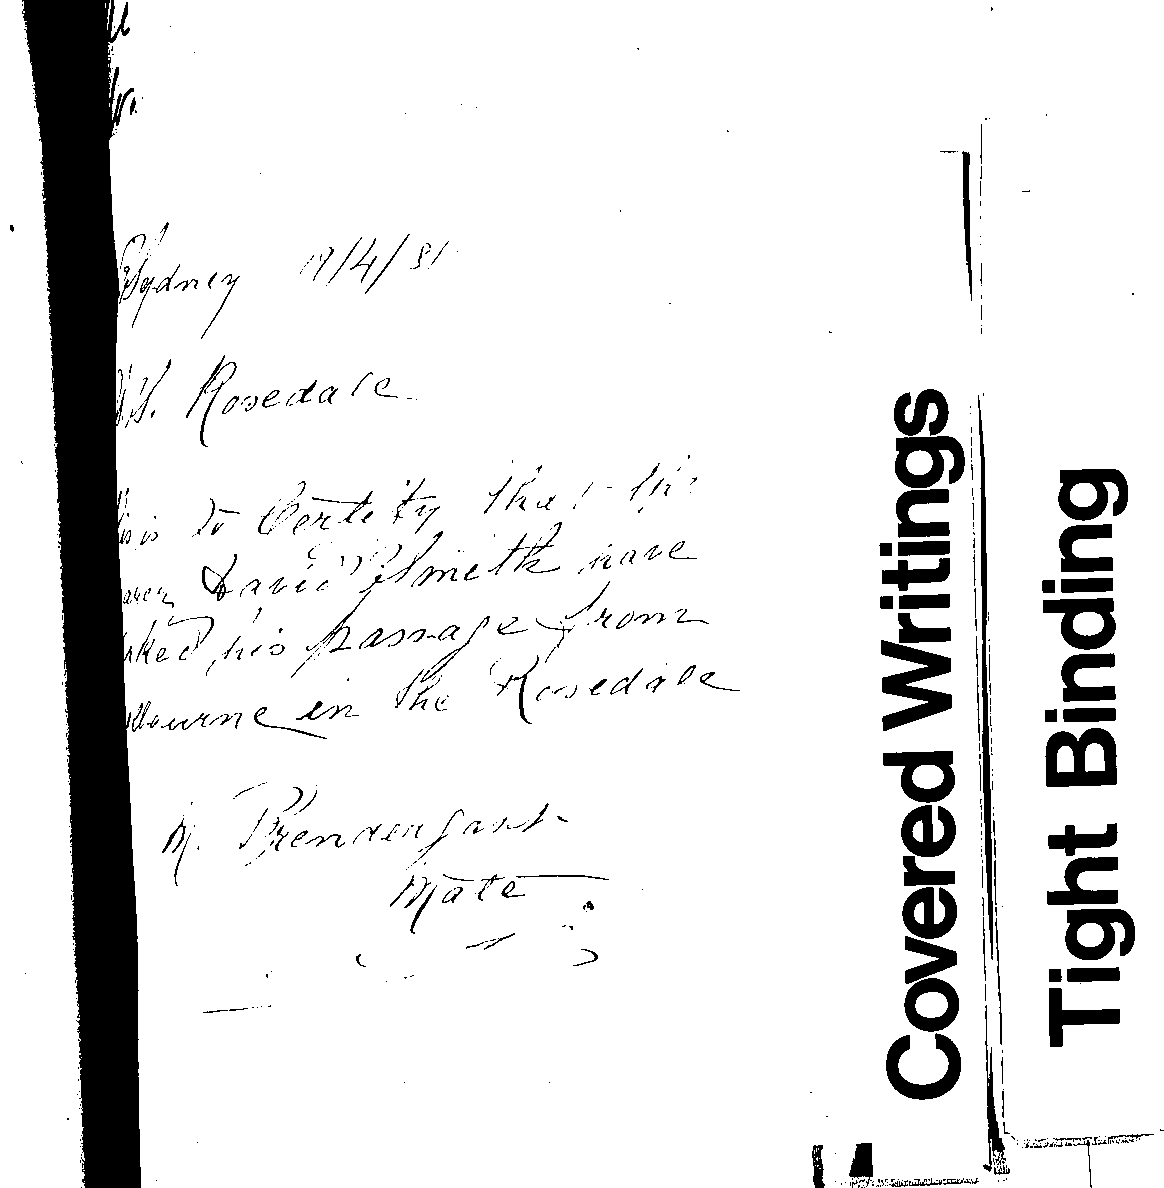 Sydney 19/4/81
S.S. Rosedale
is is to Certify that the
arer David Smith have
rked his passage from
lbourne in the Rosedale
M. Prendergast
Mate
Covered Writings
Tight Binding